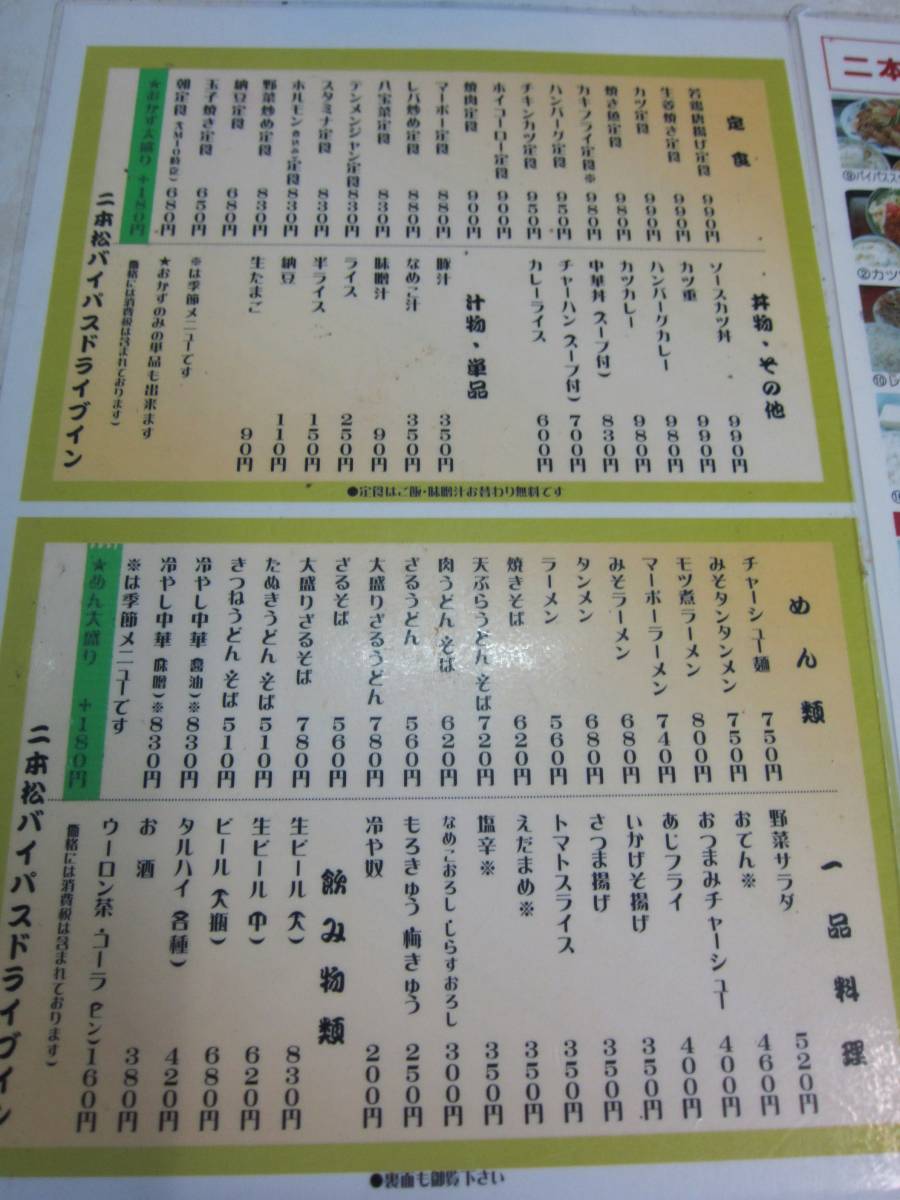 定食
若鶏唐揚げ定食 990円
生姜焼き定食 990円
カツ定食 990円
焼き魚定食 980円
カキフライ定食※ 980円
ハンバーグ定食 950円
チキンカツ定食 950円
ホイコーロー定食 900円
焼肉定食 900円
マーボー定食 880円
レバ炒め定食 880円
八宝菜定食 830円
テンメンジャン定食 830円
スタミナ定食 830円
ホルモン(煮込み)定食 830円
野菜炒め定食 830円
納豆定食 680円
玉子焼き定食 650円
朝定食(AM10時迄) 680円
★おかず大盛り +180円
丼物・その他
ソースカツ丼 990円
カツ重 990円
ハンバーグカレー 980円
カツカレー 980円
中華丼(スープ付) 830円
チャーハン(スープ付) 700円
カレーライス 600円
汁物・単品
豚汁 350円
なめこ汁 350円
味噌汁 90円
ライス 250円
半ライス 150円
納豆 110円
生たまご 90円
※は季節メニューです
★おかずのみの単品も出来ます
(価格には消費税は含まれております)
二本松バイパスドライブイン
●定食はご飯・味噌汁お替わり無料です
めん類
チャーシュー麺 750円
みそタンタンメン 750円
モツ煮ラーメン 800円
マーボーラーメン 740円
みそラーメン 680円
タンメン 680円
ラーメン 560円
焼きそば 620円
天ぷらうどん・そば 720円
肉うどん・そば 620円
ざるうどん 560円
大盛りざるうどん 780円
ざるそば 560円
大盛りざるそば 780円
たぬきうどん・そば 510円
きつねうどん・そば 510円
冷やし中華(醤油)※ 830円
冷やし中華(味噌)※ 830円
※は季節メニューです
★めん大盛り +180円
一品料理
野菜サラダ 520円
おでん※ 460円
おつまみチャーシュー 400円
あじフライ 400円
いかげそ揚げ 350円
さつま揚げ 350円
トマトスライス 350円
えだまめ※ 350円
塩辛※ 350円
なめこおろし・しらすおろし 300円
もろきゅう・梅きゅう 250円
冷や奴 200円
飲み物類
生ビール(大) 830円
生ビール(中) 620円
ビール(大瓶) 680円
タルハイ(各種) 420円
お酒 380円
ウーロン茶・コーラ(ビン) 160円
(価格には消費税は含まれております)
二本松バイパスドライブイン
●裏面も御覧下さい
二本
②カツ